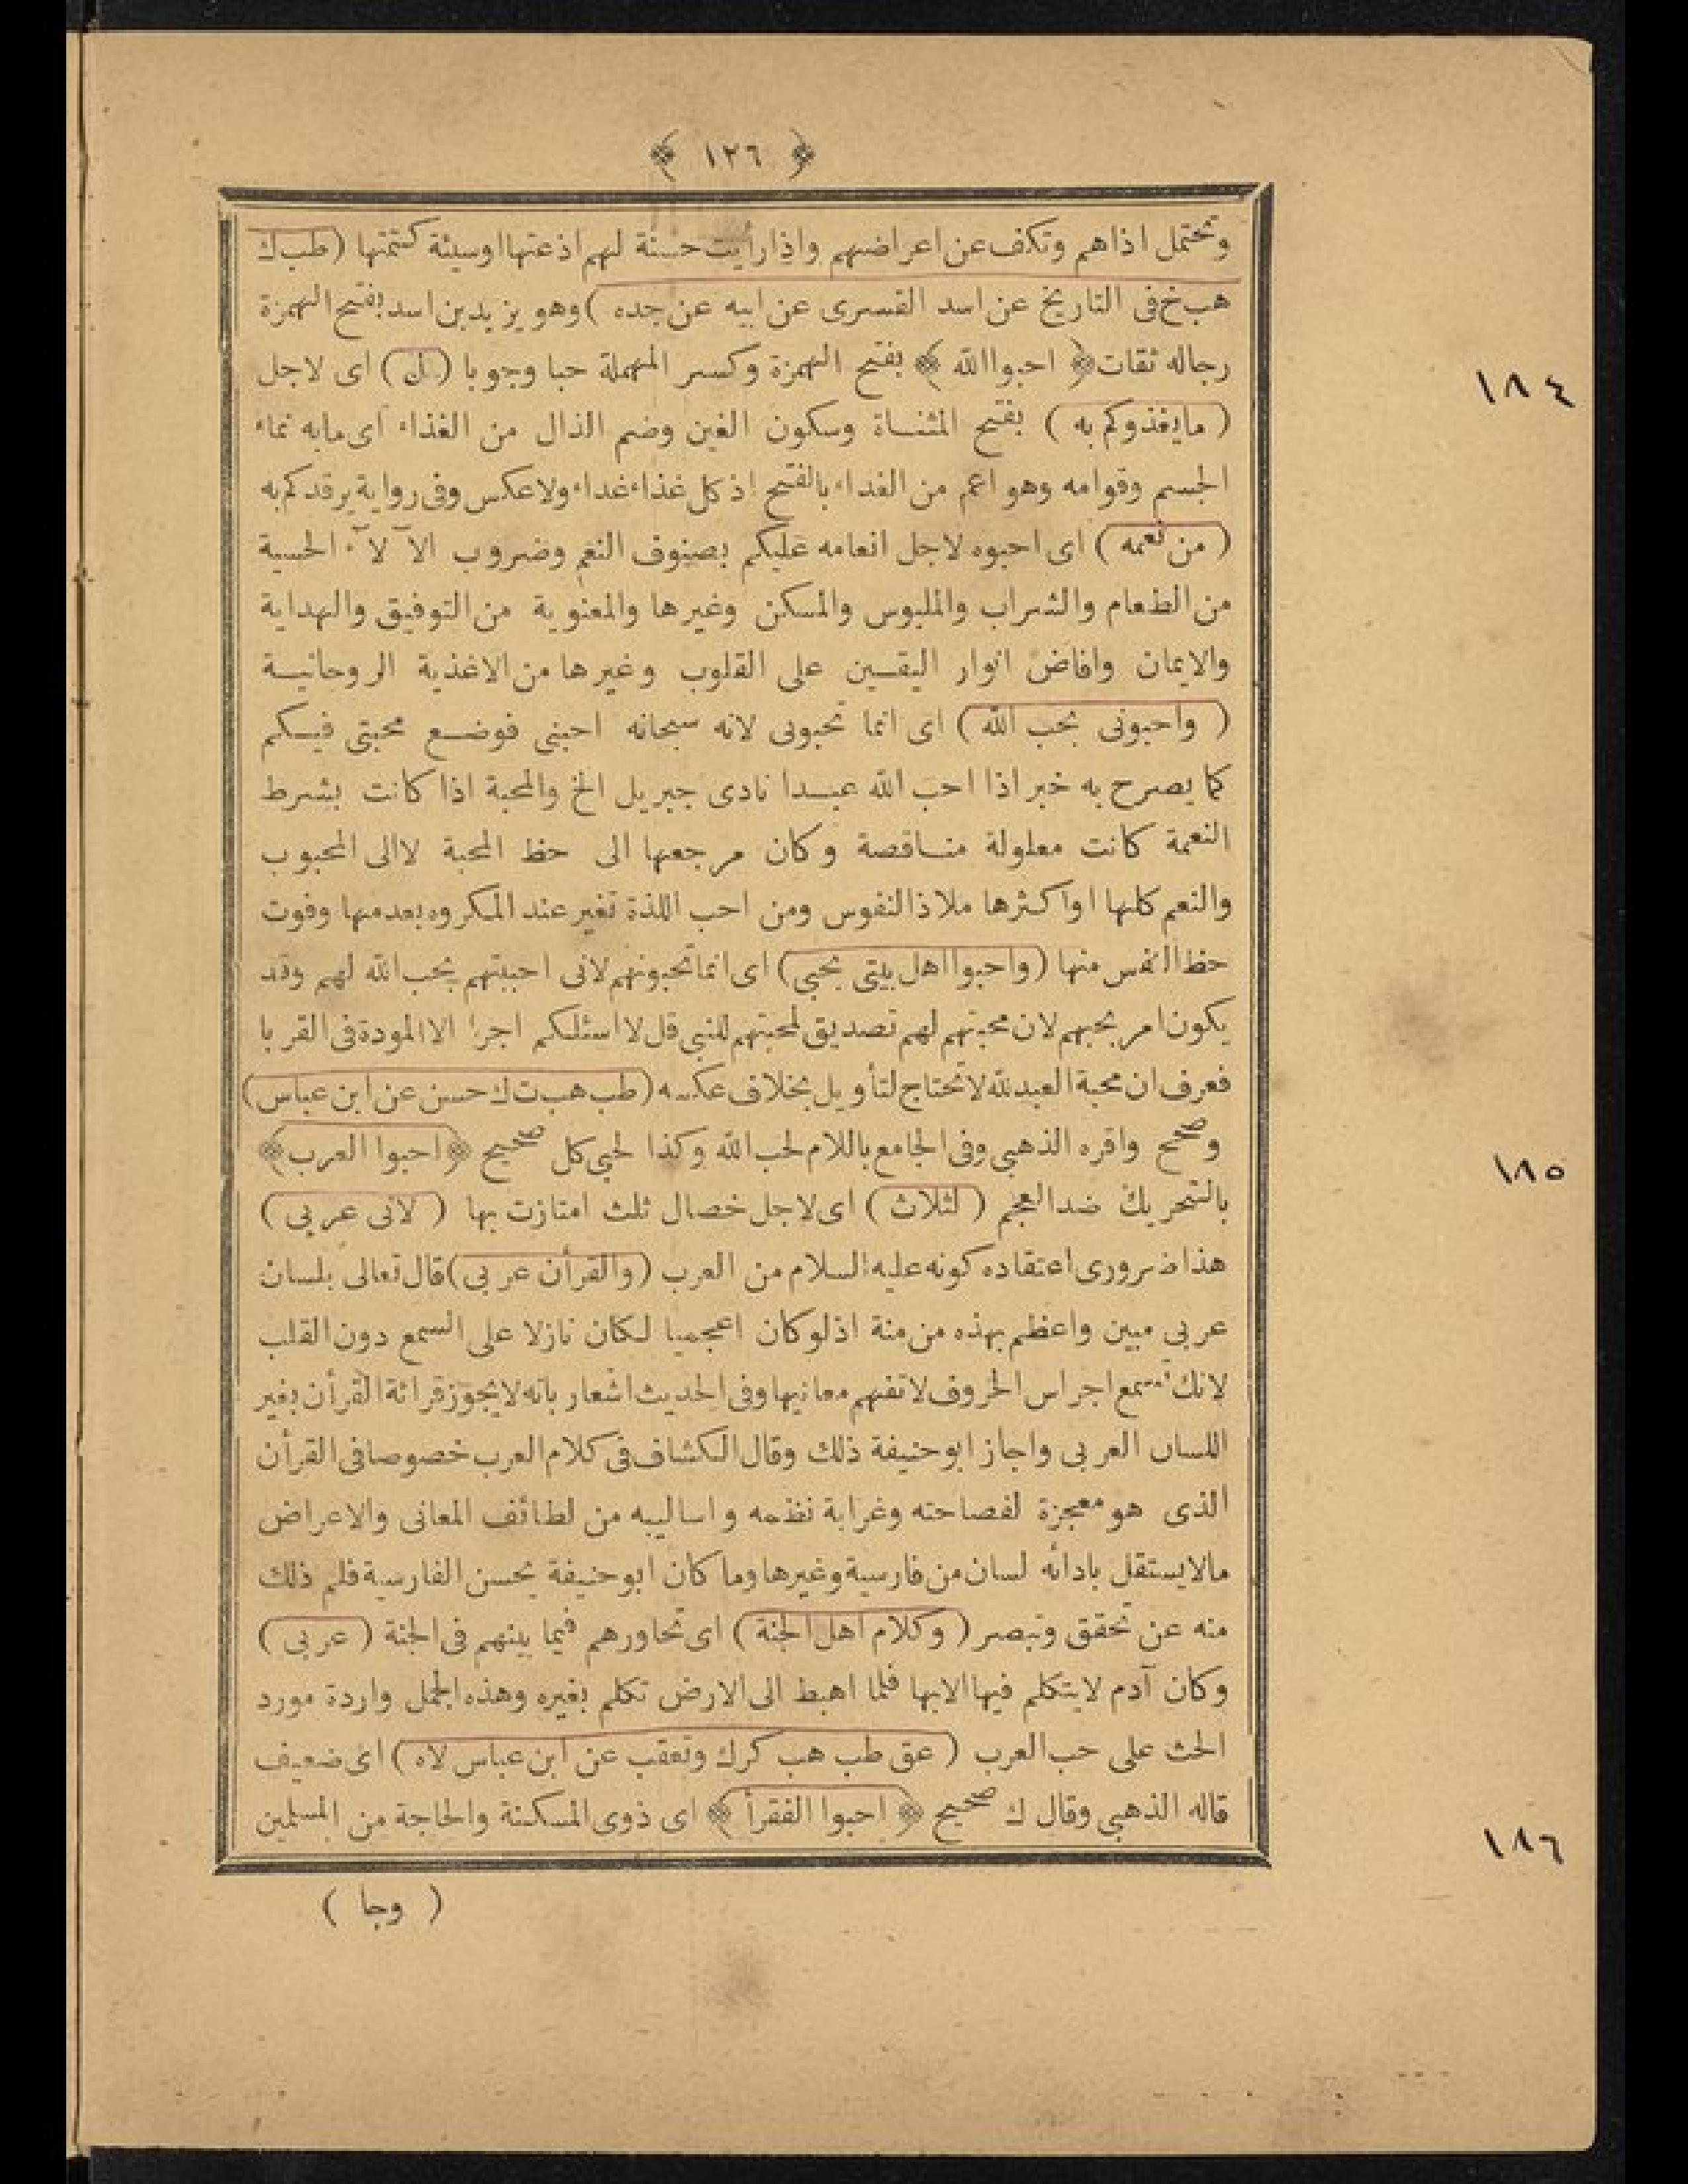 ﴿ ١٢٦ ﴾
وتحتمل اذاهم وتكف عن اعراضهم واذا رأيت حسنة لهم اذعتها اوسيئة كتمتها (طب ك
هب خ فى التاريخ عن اسد القسرى عن ابيه عن جده) وهو يزيد بن اسد بفتح الهمزة
رجاله ثقات ﴿ احبوا الله ﴾ بفتح الهمزة وكسر المهملة حبا وجوبا (لم) اى لاجل
١٨٤
(ما يغذوكم به) بفتح المثناة وسكون الغين وضم الذال من الغذاء اى مابه نماء
الجسم وقوامه وهو اعم من الغداء بالفتح اذ كل غذاء غداء ولا عكس وفى رواية يرفدكم به
(من نعمه) اى احبوه لاجل انعامه عليكم بصنوف النعم وضروب الآلآء الحسية
من الطعام والشراب والملبوس والمسكن وغيرها والمعنوية من التوفيق والهداية
والايمان وافاض انوار اليقين على القلوب وغيرها من الاغذية الروحانية
(واحبونى بحب الله) اى انما تحبونى لانه سبحانه احبنى فوضع محبتى فيكم
كما يصرح به خبر اذا احب الله عبدا نادى جبريل الخ والمحبة اذا كانت بشرط
النعمة كانت معلولة متناقصة وكان مرجعها الى حظ المحبة لا الى المحبوب
والنعم كلها او اكثرها ملاذ النفوس ومن احب اللذة تغير عند المكروه بعدمها وفوت
حظ النفس منها (واحبوا اهل بيتى بحبى) اى انما تحبونهم لانى احببتهم بحب الله لهم وقد
يكون امر بحبهم لان محبتهم لهم تصديق لمحبتهم للنبى قل لا اسئلكم اجرا الا المودة فى القربا
فعرف ان محبة العبد لله لا تحتاج لتأويل بخلاف عكسه (طب هب ت ك حسن عن ابن عباس)
وصحح واقره الذهبى وفى الجامع باللام لحب الله وكذا لحبى كل صحيح ﴿احبوا العرب﴾
١٨٥
بالتحريك ضد العجم (لثلاث) اى لاجل خصال ثلث امتازت بها (لانى عربى)
هذا ضرورى اعتقاده كونه عليه السلام من العرب (والقرأن عربى) قال تعالى بلسان
عربى مبين واعظم بهذه من منة اذ لو كان اعجميا لكان نازلا على السمع دون القلب
لانك تسمع اجراس الحروف لا تفهم معانيها وفى الحديث اشعار بانه لا يجوز قرائة القرأن بغير
اللسان العربى واجاز ابو حنيفة ذلك وقال الكشاف فى كلام العرب خصوصا فى القرأن
الذى هو معجزة لفصاحته وغرابة نظمه واساليبه من لطائف المعانى والاعراض
مالا يستقل بادائه لسان من فارسية وغيرها وما كان ابو حنيفة يحسن الفارسية فلم ذلك
منه عن تحقق وتبصر (وكلام اهل الجنة) اى تحاورهم فيما بينهم فى الجنة (عربى)
وكان آدم لا يتكلم فيها الا بها فلما اهبط الى الارض تكلم بغيره وهذه الجمل واردة مورد
الحث على حب العرب (عق طب هب كرك وتعقب عن ابن عباس لاه) اى ضعيف
قاله الذهبى وقال ك صحيح ﴿ احبوا الفقرأ ﴾ اى ذوى المسكنة والحاجة من المسلمين
١٨٦
(وجا)